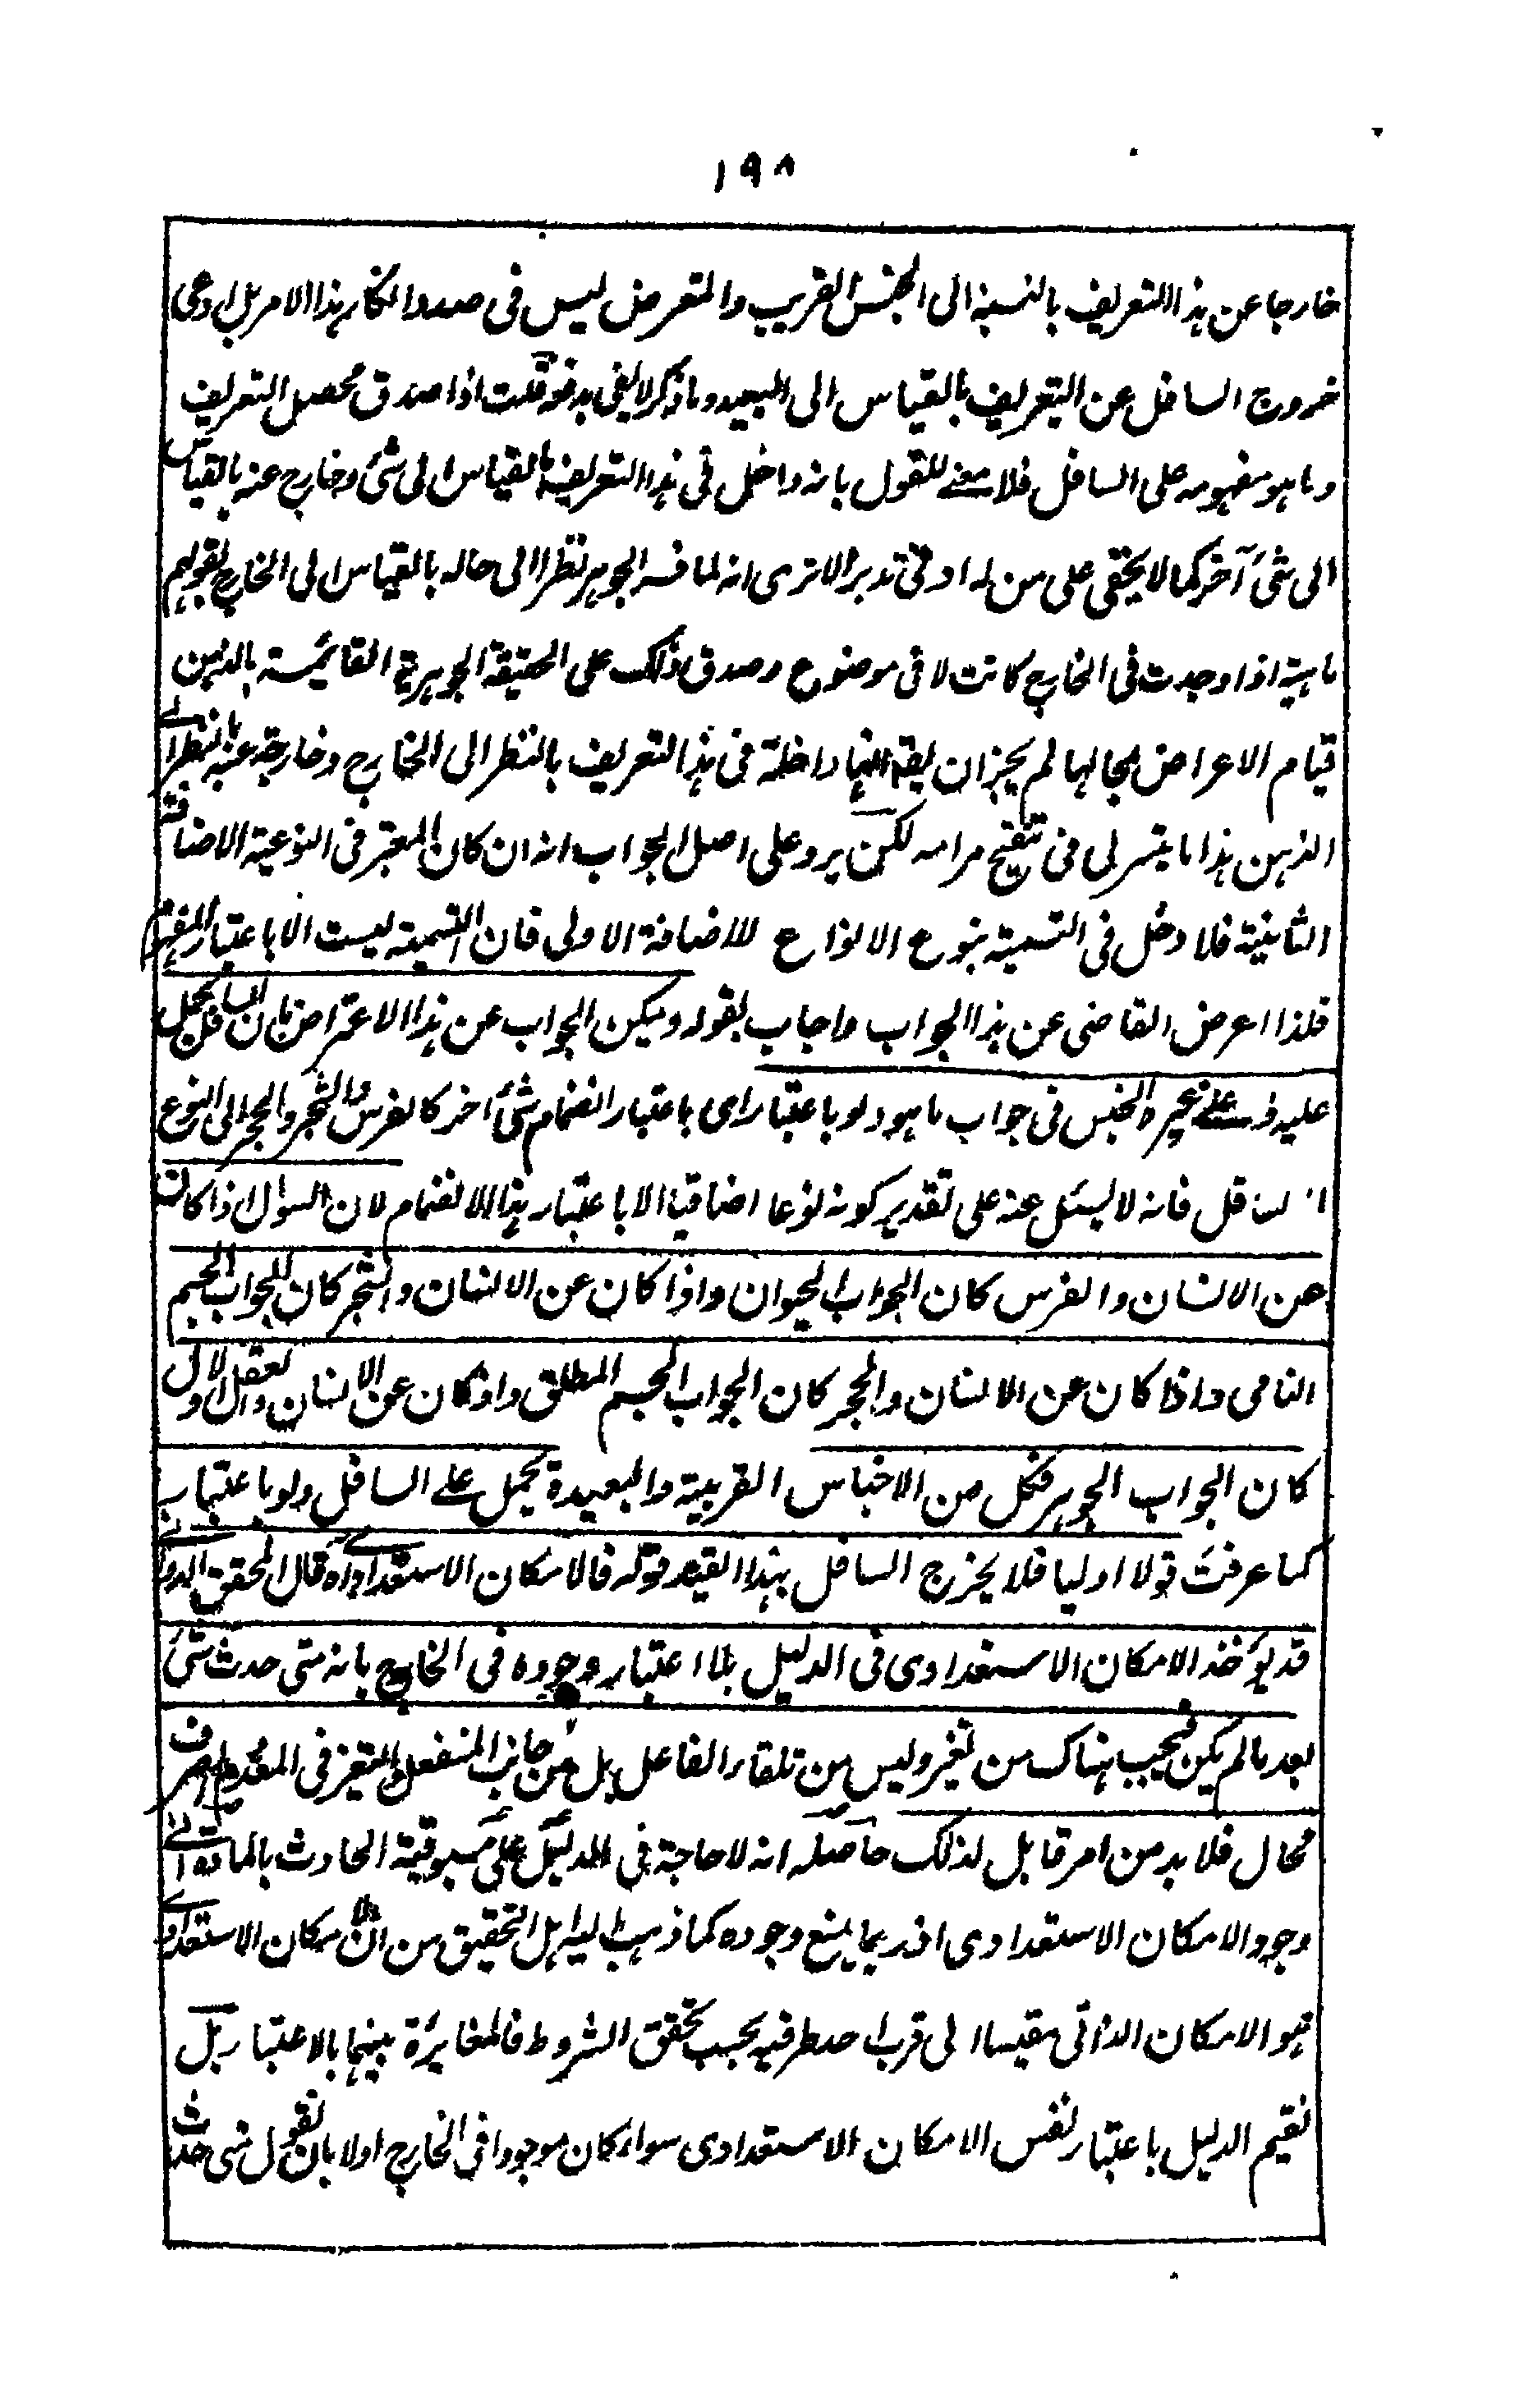 ١٩٨
خارجا عن هذا التعريف بالنسبة الى الجنس القريب والمتعرض ليس فى صدد انكار هذا الامر بل ادعى
خروج السافل عن التعريف بالقياس الى البعيد وما ذكر لا يفى بدفعه قلت اذا صدق محصل التعريف
وما هو مفهومه على السافل فلا معنے للقول بانه داخل فى هذا التعريف بالقياس الى شئ وخارج عنه بالقياس
الى شئ آخر كما لا يخفى على من له ادنى تدبر الا ترى انه لما فسر الجوهر نظرا الى حاله بالقياس الى الخارج بقولهم
ماهية اذا وجدت فى الخارج كانت لا فى موضوع وصدق ذلك على الحقيقة الجوهرية القائمة بالذهن
قيام الاعراض بمحالها لم يجز ان يقال انها داخلة فى هذا التعريف بالنظر الى الخارج وخارجة عنه بالنظر الے
الذهن هذا ما يتسر لى فى تنقيح مرامه لكن يرد على اصل الجواب انه ان كان المعتبر فى النوعية الاضافة
الثانية فلا دخل فى التسمية بنوع الانواع للاضافة الاولى فان التسمية ليست الا باعتبار المفهوم
فلذا اعرض القاضى عن هذا الجواب واجاب بقوله ويمكن الجواب عن هذا الاعتراض بان السافل يحمل
عليه وعلے غيره الجنس فى جواب ما هو ولو باعتبار اى باعتبار انضمام شئ اخر كالفرس والشجر والحجر الى النوع
السافل فانه لا يسئل عنه على تقدير كونه نوعا اضافيا الا باعتبار هذا الانضمام لان السوال اذا كان
عن الانسان والفرس كان الجواب الحيوان واذا كان عن الانسان والشجر كان الجواب الجسم
النامى واذا كان عن الانسان والحجر كان الجواب الجسم المطلق واذا كان عن الانسان والعقل الاول
كان الجواب الجوهر فكل من الاجناس القريبة والبعيدة يحمل علے السافل ولو باعتبار
كما عرفت قولا اوليا فلا يخرج السافل بهذا القيد قوله فالامكان الاستعدادے اه قال المحقق الدوانے
قد يؤخذ الامكان الاستعدادى فى الدليل بلا اعتبار وجوده فى الخارج بانه متى حدث شئ
بعد ما لم يكن فيجب هناك من تغير وليس من تلقاء الفاعل بل من جانب المنفعل والتغير فى المعدوم الصرف
محال فلا بد من امر قابل لذلك حاصله انه لا حاجة فى الدليل على مسبوقية الحادث بالمادة الے
وجود الامكان الاستعدادى اذ ربما يمنع وجوده كما ذهب اليه اهل التحقيق من ان الامكان الاستعدادے
هو الامكان الذاتى مقيسا الى قرب احد طرفيه بحسب تحقق الشروط فالمغايرة بينهما بالاعتبار بل
نقيم الدليل باعتبار نفس الامكان الاستعدادى سواء كان موجودا فى الخارج اولا بان نقول متى حدث